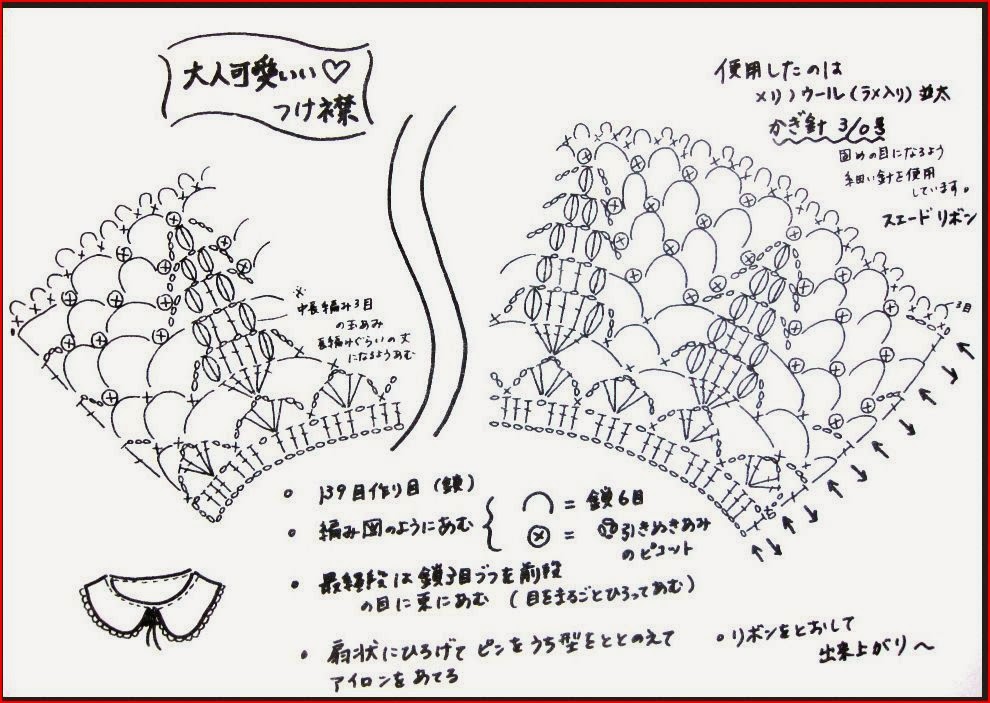 大人可愛いい♡
つけ襟
使用したのは
メリノウール(ラメ入り)並太
かぎ針 3/0号
固めの目になるよう
細い針を使用
しています。
スエードリボン
※
中長編み3目
の玉あみ
長編みぐらいの丈
になるようあむ
3目
• 139目作り目(鎖)
• 編み図のようにあむ
⌒ = 鎖6目
⊗ = 引きぬきあみ
のピコット
• 最終段は鎖3目づつを前段
の目に束にあむ(目をまるごとひろってあむ)
• 扇状にひろげてピンをうち型をととのえて
アイロンをあてる
• リボンをとおして
出来上がり〜